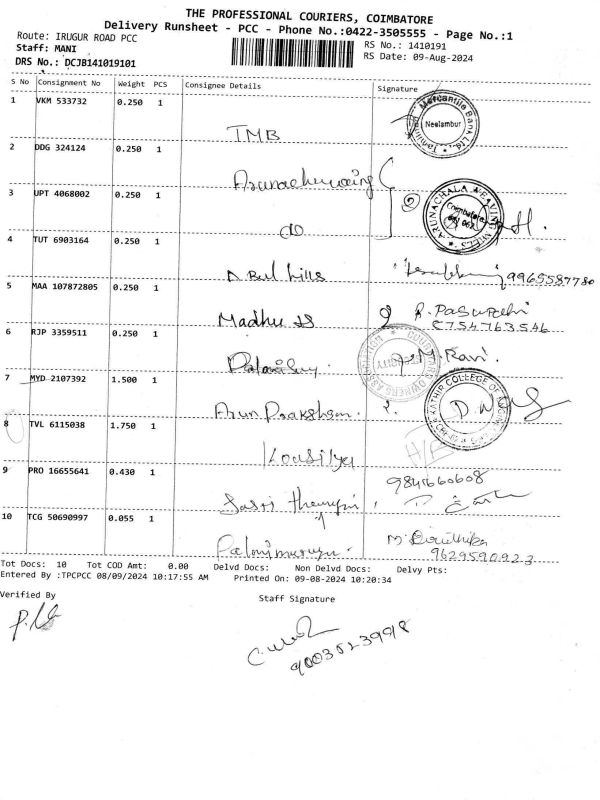 THE PROFESSIONAL COURIERS, COIMBATORE
Delivery Runsheet - PCC - Phone No.:0422-3505555 - Page No.:1
Route: IRUGUR ROAD PCC
RS No.: 1410191
Staff: MANI
RS Date: 09-Aug-2024
DRS No.: DCJB141019101
S No Consignment No Weight PCS Consignee Details Signature
1 VKM 533732 0.250 1 TMB
Tamilnad Mercantile Bank Ltd.,
Neelambur
2 DDG 324124 0.250 1
3 UPT 4068002 0.250 1 do
2
ARUNACHALA WEAVING MILLS
Coimbatore
4 TUT 6903164 0.250 1 9965587780
5 MAA 107872805 0.250 1 Madhu
8754763546
6 RJP 3359511 0.250 1 M. Ravi.
COURIERS OWNERS ASSOCIATION
7 MYD 2107392 1.500 1 Arun Prakasham
KATHIR COLLEGE OF
8 TVL 6115038 1.750 1 Kousilya
9 PRO 16655641 0.430 1
9841660608
10 TCG 50690997 0.055 1 Palanimurugan
9629590923
Tot Docs: 10 Tot COD Amt: 0.00 Delvd Docs: Non Delvd Docs: Delvy Pts:
Entered By :TPCPCC 08/09/2024 10:17:55 AM Printed On: 09-08-2024 10:20:34
Verified By
Staff Signature
9003523998